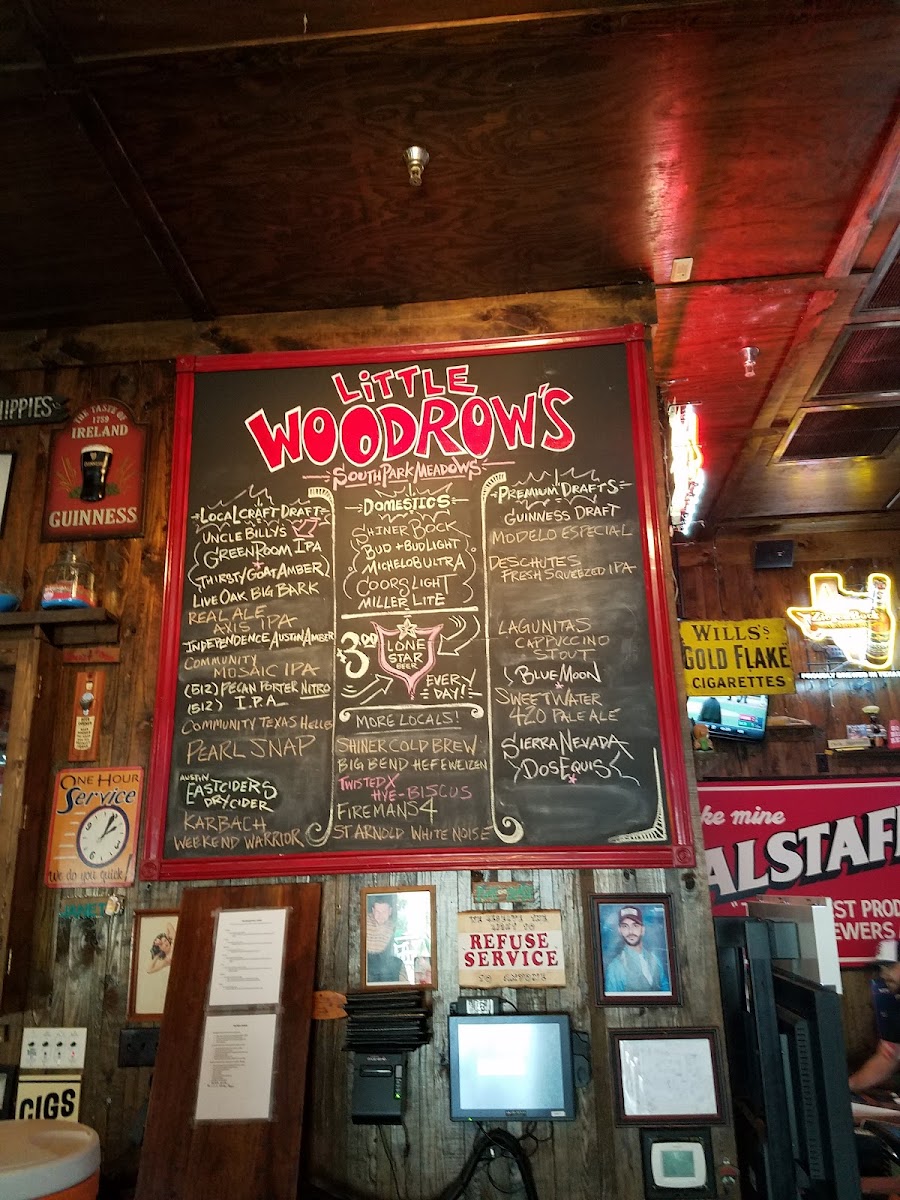 LiTTLE
WOODROW'S
SOUTH PARK MEADOWS
LOCAL CRAFT DRAFT
UNCLE BILLY'S
GREEN ROOM IPA
THIRSTY GOAT AMBER
LIVE OAK BIG BARK
REAL ALE
AXIS IPA
INDEPENDENCE AUSTIN AMBER
COMMUNITY
MOSAIC IPA
(512) PECAN PORTER NITRO
(512) I.P.A.
COMMUNITY TEXAS HELLES
PEARL SNAP
AUSTIN
EASTCIDERS
DRY CIDER
KARBACH
WEEKEND WARRIOR
DOMESTICS
SHINER BOCK
BUD + BUD LIGHT
MICHELOB ULTRA
COORS LIGHT
MILLER LITE
$3.00
LONE
STAR
BEER
EVERY
DAY!
MORE LOCALS!
SHINER COLD BREW
BIG BEND HEFEWEIZEN
TWISTED X
HYE-BISCUS
FIREMANS 4
ST ARNOLD WHITE NOISE
PREMIUM DRAFTS
GUINNESS DRAFT
MODELO ESPECIAL
DESCHUTES
FRESH SQUEEZED IPA
LAGUNITAS
CAPPUCCINO
STOUT
BLUE MOON
SWEETWATER
420 PALE ALE
SIERRA NEVADA
DOS EQUIS
HIPPIES
THE TASTE OF
1759
IRELAND
GUINNESS
ONE HOUR
Service
We do you quick!
CIGS
WE RESERVE THE
RIGHT TO
REFUSE
SERVICE
TO ANYONE
WILLS's
GOLD FLAKE
CIGARETTES
PROUDLY BREWED IN TEXAS
ke mine
ALSTAFF
ST PROD
EWERS